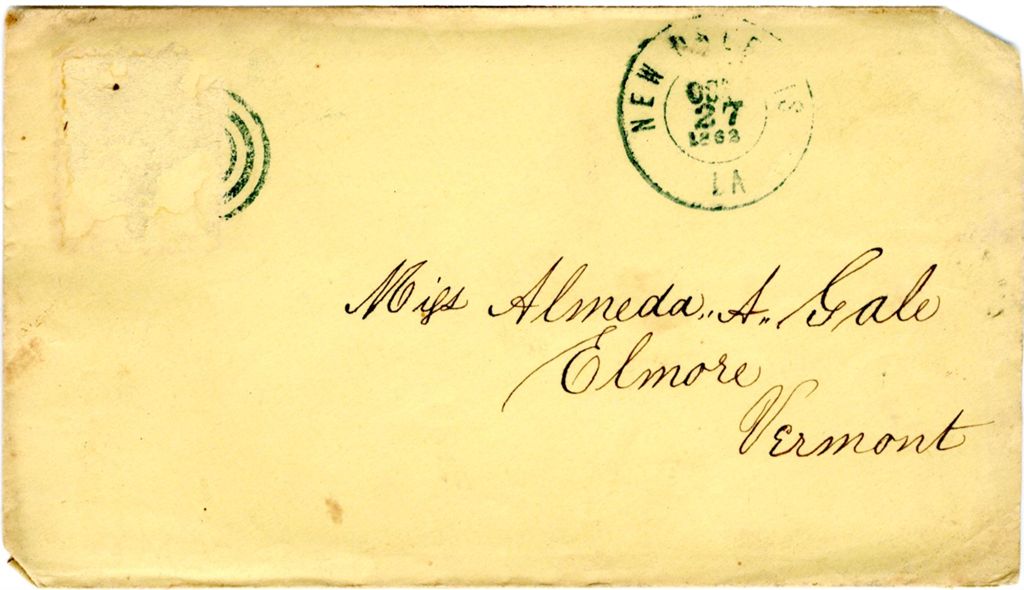 NEW ORLEANS
OCT
27
1862
LA
Miss Almeda A. Gale
Elmore
Vermont